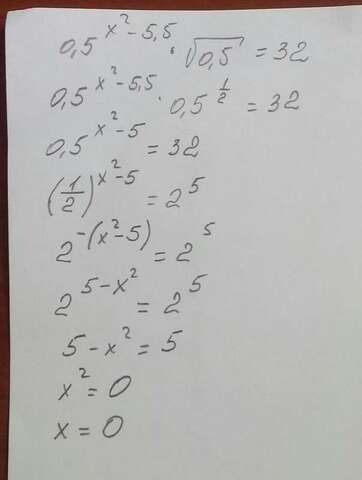 0,5^{x²-5,5} · √0,5 = 32
0,5^{x²-5,5} · 0,5^{1/2} = 32
0,5^{x²-5} = 32
(1/2)^{x²-5} = 2^5
2^{-(x²-5)} = 2^5
2^{5-x²} = 2^5
5-x² = 5
x² = 0
x = 0